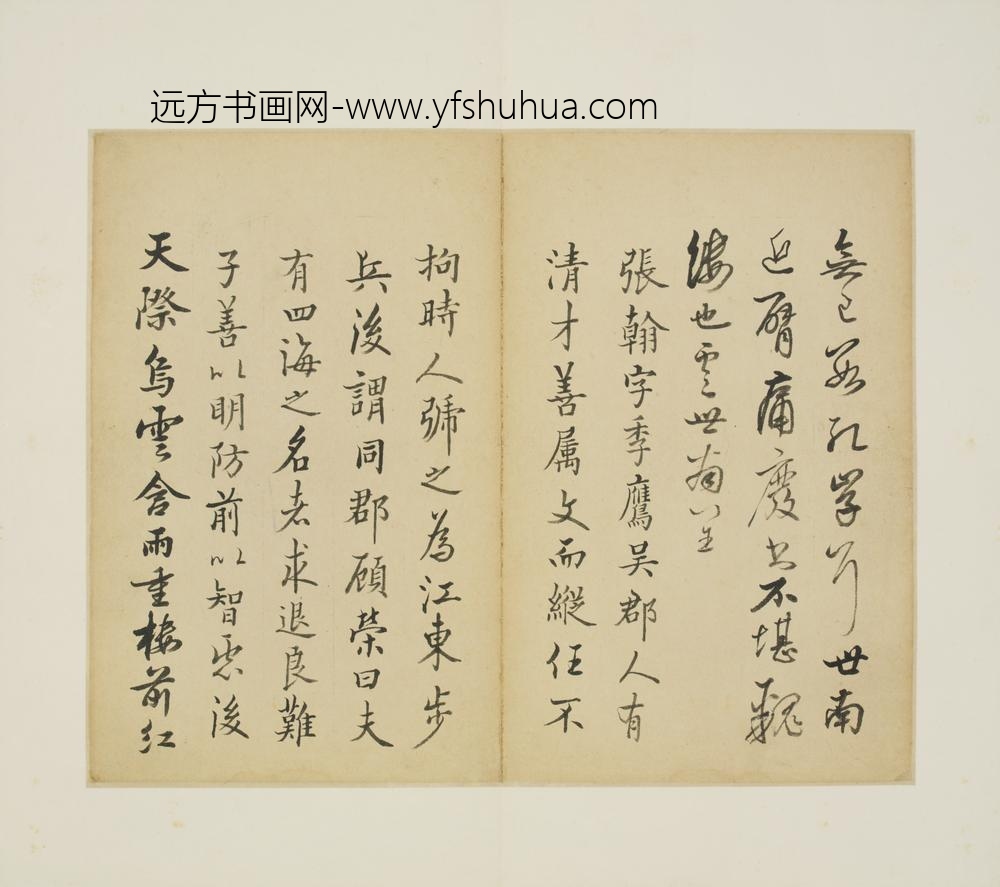 远方书画网-www.yfshuhua.com
無已數學世南
近臂痛廢書不堪覶
縷也世南
張翰字季鷹吳郡人有
清才善属文而縱任不
拘時人號之為江東步
兵後謂同郡顧榮曰夫
有四海之名者求退良難
子善以明防前以智慮後
天際烏雲含雨重樓前紅